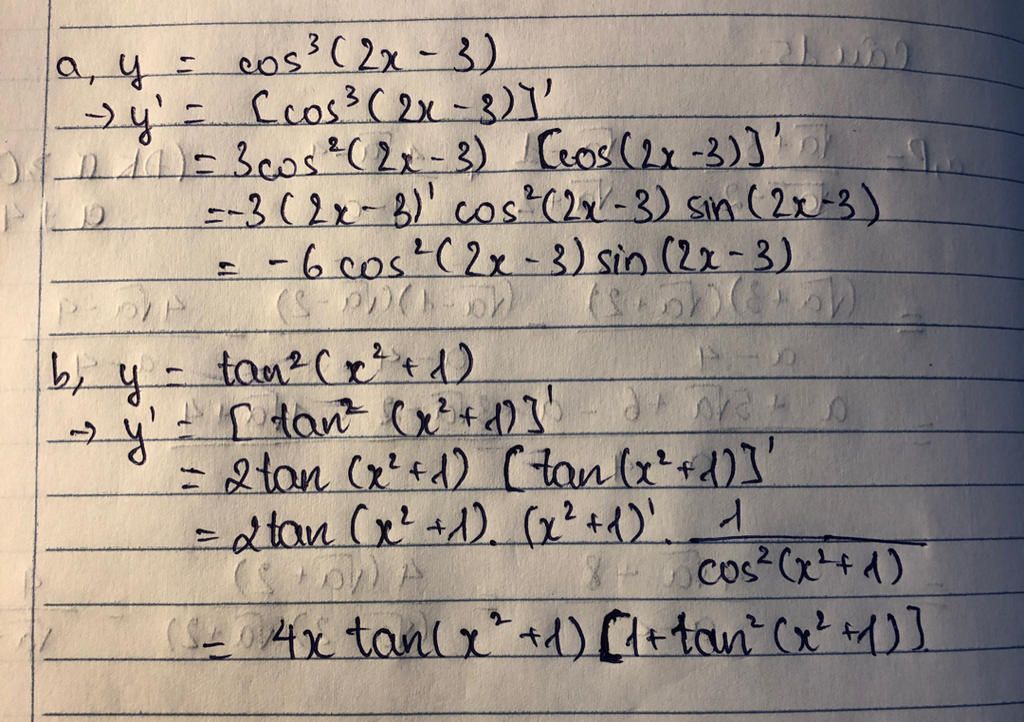 a, y = cos³(2x - 3)
→ y' = [cos³(2x - 3)]'
= 3cos²(2x - 3) [cos(2x - 3)]'
= -3(2x - 3)' cos²(2x - 3) sin(2x - 3)
= -6 cos²(2x - 3) sin(2x - 3)
b, y = tan²(x² + 1)
→ y' = [tan² (x² + 1)]'
= 2tan (x² + 1) [tan(x² + 1)]'
= 2tan (x² + 1). (x² + 1)'. 1 / cos²(x² + 1)
= 4x tan(x² + 1) [1 + tan²(x² + 1)]